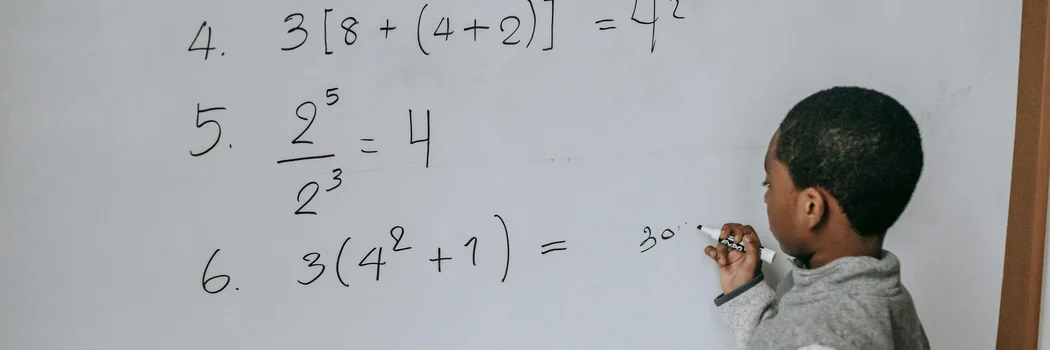 4. 3[8 + (4+2)] = 42
5. 2⁵/2³ = 4
6. 3(4² + 1) = 30